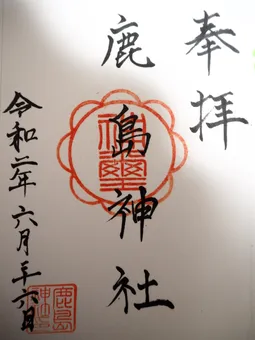 奉拝
鹿島神社
令和二年六月二十六日
鹿島
神社